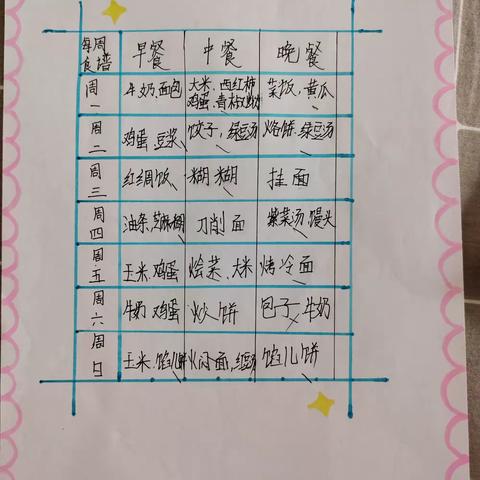 每周食谱 早餐 中餐 晚餐
周一 牛奶.面包 大米、西红柿鸡蛋、青椒 菜饭、黄瓜
周二 鸡蛋、豆浆 饺子,绿豆汤 烙饼、绿豆汤
周三 红绸饭 糊糊 挂面
周四 油条、芝麻糊 刀削面 紫菜汤、馒头
周五 玉米、鸡蛋 烩菜、大米 烤冷面
周六 牛奶 鸡蛋 炒饼 包子、牛奶
周日 玉米、馅儿饼 焖面, 馅儿饼